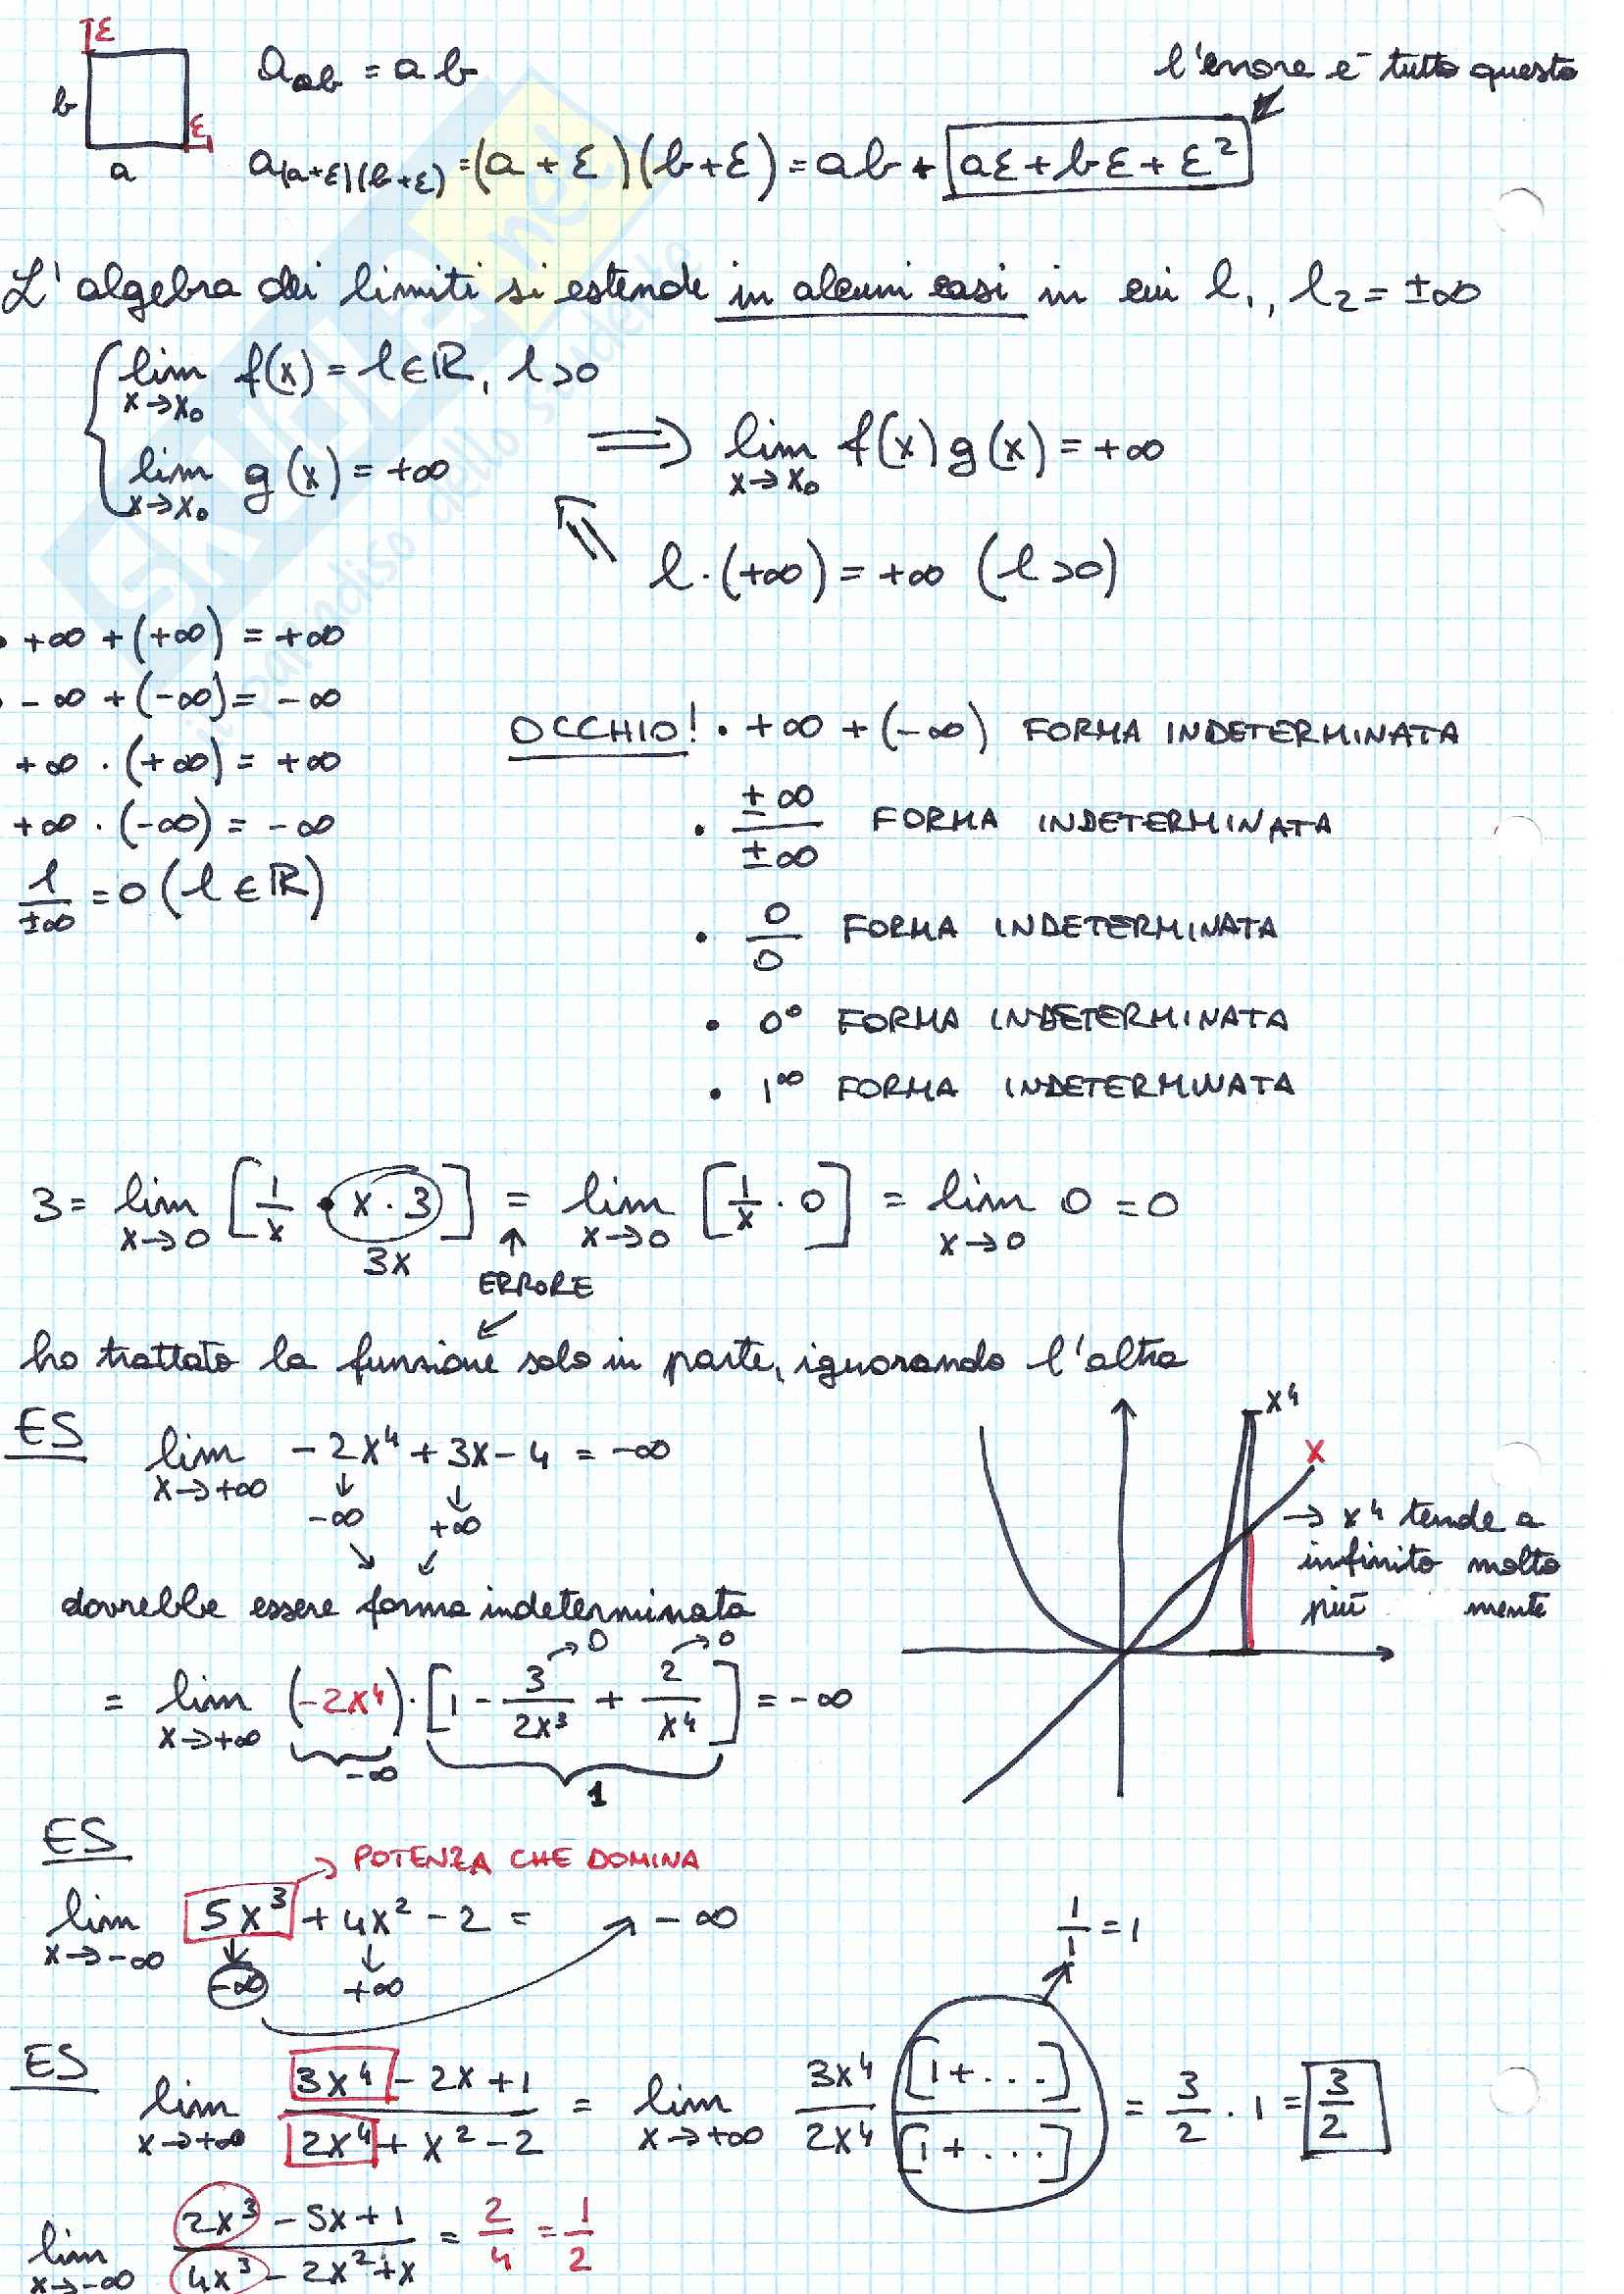 ε
b
ε
a
a_{ab} = ab
l'errore è tutto questo
a_{(a+ε)(b+ε)} = (a + ε)(b + ε) = ab + aε + bε + ε²
L'algebra dei limiti si estende in alcuni casi in cui l₁, l₂ = ±∞
lim x→x₀ f(x) = l ∈ ℝ, l > 0
lim x→x₀ g(x) = +∞
⟹ lim x→x₀ f(x) g(x) = +∞
l · (+∞) = +∞ (l > 0)
• +∞ + (+∞) = +∞
• -∞ + (-∞) = -∞
+∞ · (+∞) = +∞
+∞ · (-∞) = -∞
l/±∞ = 0 (l ∈ ℝ)
OCCHIO! • +∞ + (-∞) FORMA INDETERMINATA
• ±∞/±∞ FORMA INDETERMINATA
• 0/0 FORMA INDETERMINATA
• 0⁰ FORMA INDETERMINATA
• 1^∞ FORMA INDETERMINATA
3 = lim x→0 [1/x · x · 3] = lim x→0 [1/x · 0] = lim x→0 0 = 0
3x
↑
ERRORE
ho trattato la funzione solo in parte, ignorando l'altra
ES
lim x→+∞ -2x⁴ + 3x - 4 = -∞
↓ ↓
-∞ +∞
dovrebbe essere forma indeterminata
= lim x→+∞ (-2x⁴) · [1 - 3/2x³ + 2/x⁴] = -∞
→0 →0
-∞
1
x⁴
x
→ x⁴ tende a
infinito molto
più mente
ES
→ POTENZA CHE DOMINA
lim x→-∞ 5x³ + 4x² - 2 = -∞
↓ ↓
-∞ +∞
1/1 = 1
ES
lim x→+∞ (3x⁴ - 2x + 1)/(2x⁴ + x² - 2) = lim x→+∞ 3x⁴/2x⁴ [1 + ...]/[1 + ...] = 3/2 · 1 = 3/2
lim x→-∞ (2x³ - 5x + 1)/(4x³ - 2x² + x) = 2/4 = 1/2
SKUOLA.net
il paradiso dello studente